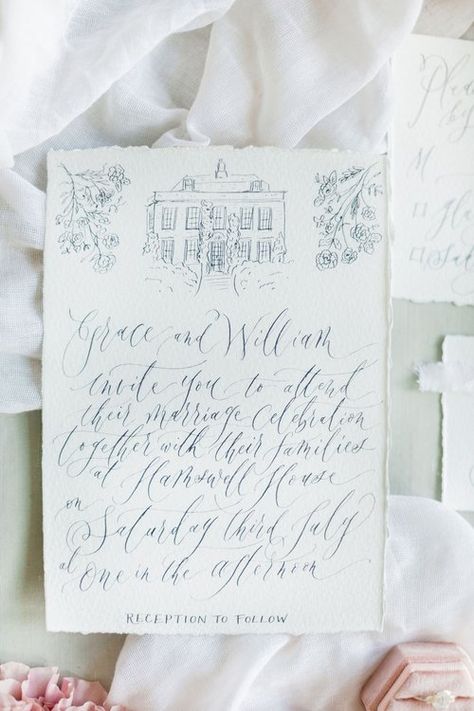 Grace and William
invite you to attend
their marriage celebration
together with their families
at Hamswell House
on
Saturday third July
at
One in the afternoon
RECEPTION TO FOLLOW
by
M